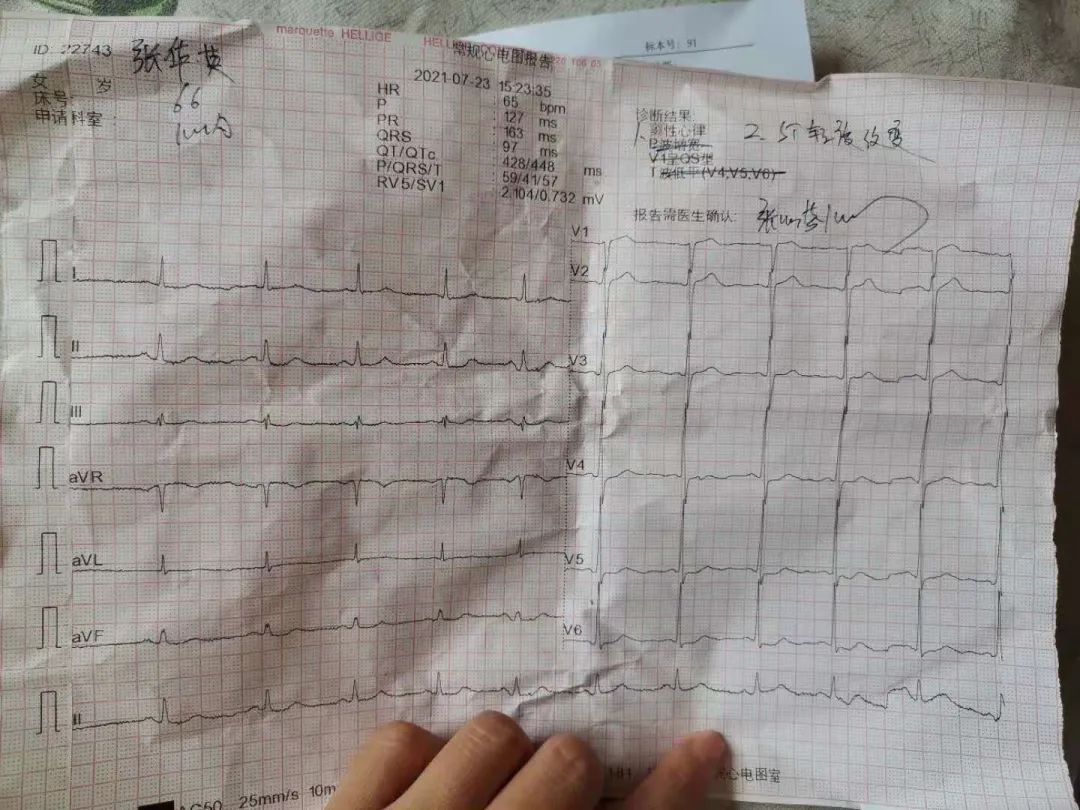 marquette HELLIGE HELLIGE
标本号: 91
ID: 22743 张华英
常规心电图报告
2021-07-23 15:23:35
女 岁 66
床号:
申请科室:
HR : 65 bpm
P : 127 ms
PR : 163 ms
QRS : 97 ms
QT/QTc : 428/448 ms
P/QRS/T : 59/41/57
RV5/SV1 : 2.104/0.732 mV
诊断结果:
1. 窦性心律 2. ST轻度改变
P波增宽
V1呈QS型
T波低平(V4,V5,V6)
报告需医生确认:
I
II
III
aVR
aVL
aVF
II
V1
V2
V3
V4
V5
V6
AC50 25mm/s 10m
心电图室